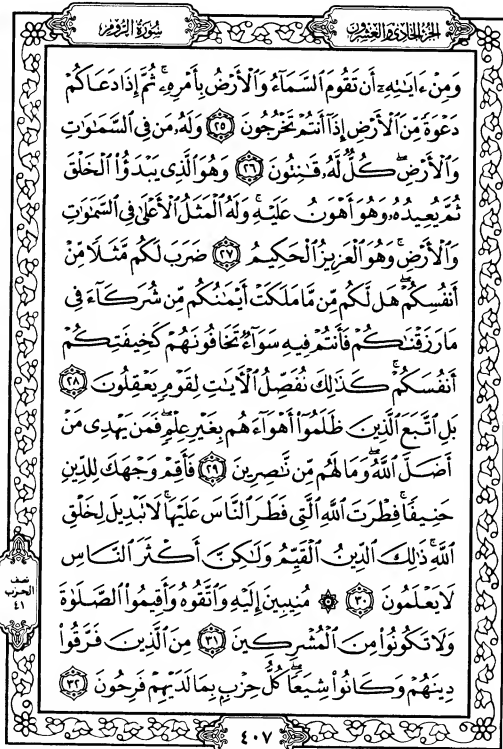 الجزء الحادي والعشرون
سورة الروم
وَمِنْ ءَايَٰتِهِۦٓ أَن تَقُومَ ٱلسَّمَآءُ وَٱلْأَرْضُ بِأَمْرِهِۦ ۚ ثُمَّ إِذَا دَعَاكُمْ
دَعْوَةً مِّنَ ٱلْأَرْضِ إِذَآ أَنتُمْ تَخْرُجُونَ ٢٥ وَلَهُۥ مَن فِى ٱلسَّمَٰوَٰتِ
وَٱلْأَرْضِ ۖ كُلٌّ لَّهُۥ قَٰنِتُونَ ٢٦ وَهُوَ ٱلَّذِى يَبْدَؤُا۟ ٱلْخَلْقَ
ثُمَّ يُعِيدُهُۥ وَهُوَ أَهْوَنُ عَلَيْهِ ۚ وَلَهُ ٱلْمَثَلُ ٱلْأَعْلَىٰ فِى ٱلسَّمَٰوَٰتِ
وَٱلْأَرْضِ ۚ وَهُوَ ٱلْعَزِيزُ ٱلْحَكِيمُ ٢٧ ضَرَبَ لَكُم مَّثَلًا مِّنْ
أَنفُسِكُمْ ۖ هَل لَّكُم مِّن مَّا مَلَكَتْ أَيْمَٰنُكُم مِّن شُرَكَآءَ فِى
مَا رَزَقْنَٰكُمْ فَأَنتُمْ فِيهِ سَوَآءٌ تَخَافُونَهُمْ كَخِيفَتِكُمْ
أَنفُسَكُمْ ۚ كَذَٰلِكَ نُفَصِّلُ ٱلْءَايَٰتِ لِقَوْمٍ يَعْقِلُونَ ٢٨
بَلِ ٱتَّبَعَ ٱلَّذِينَ ظَلَمُوٓا۟ أَهْوَآءَهُم بِغَيْرِ عِلْمٍ ۖ فَمَن يَهْدِى مَنْ
أَضَلَّ ٱللَّهُ ۖ وَمَا لَهُم مِّن نَّٰصِرِينَ ٢٩ فَأَقِمْ وَجْهَكَ لِلدِّينِ
حَنِيفًا ۚ فِطْرَتَ ٱللَّهِ ٱلَّتِى فَطَرَ ٱلنَّاسَ عَلَيْهَا ۚ لَا تَبْدِيلَ لِخَلْقِ
ٱللَّهِ ۚ ذَٰلِكَ ٱلدِّينُ ٱلْقَيِّمُ وَلَٰكِنَّ أَكْثَرَ ٱلنَّاسِ
لَا يَعْلَمُونَ ٣٠ ۞ مُنِيبِينَ إِلَيْهِ وَٱتَّقُوهُ وَأَقِيمُوا۟ ٱلصَّلَوٰةَ
وَلَا تَكُونُوا۟ مِنَ ٱلْمُشْرِكِينَ ٣١ مِنَ ٱلَّذِينَ فَرَّقُوا۟
دِينَهُمْ وَكَانُوا۟ شِيَعًا ۖ كُلُّ حِزْبٍۭ بِمَا لَدَيْهِمْ فَرِحُونَ ٣٢
نصف
الحزب
٤١
٤٠٧